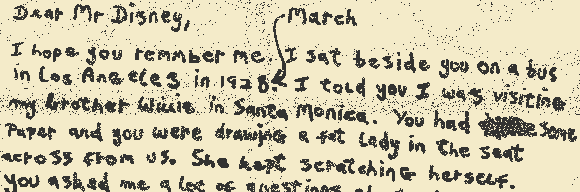 Dear Mr Disney,
March
I hope you remmber me. I sat beside you on a bus
in Los Angeles in 1928. I told you I was visiting
my brother Willie in Santa Monica. You had some
Paper and you were drawing a fat lady in the seat
across from us. She kept scratching herself.
you asked me a lot of questions